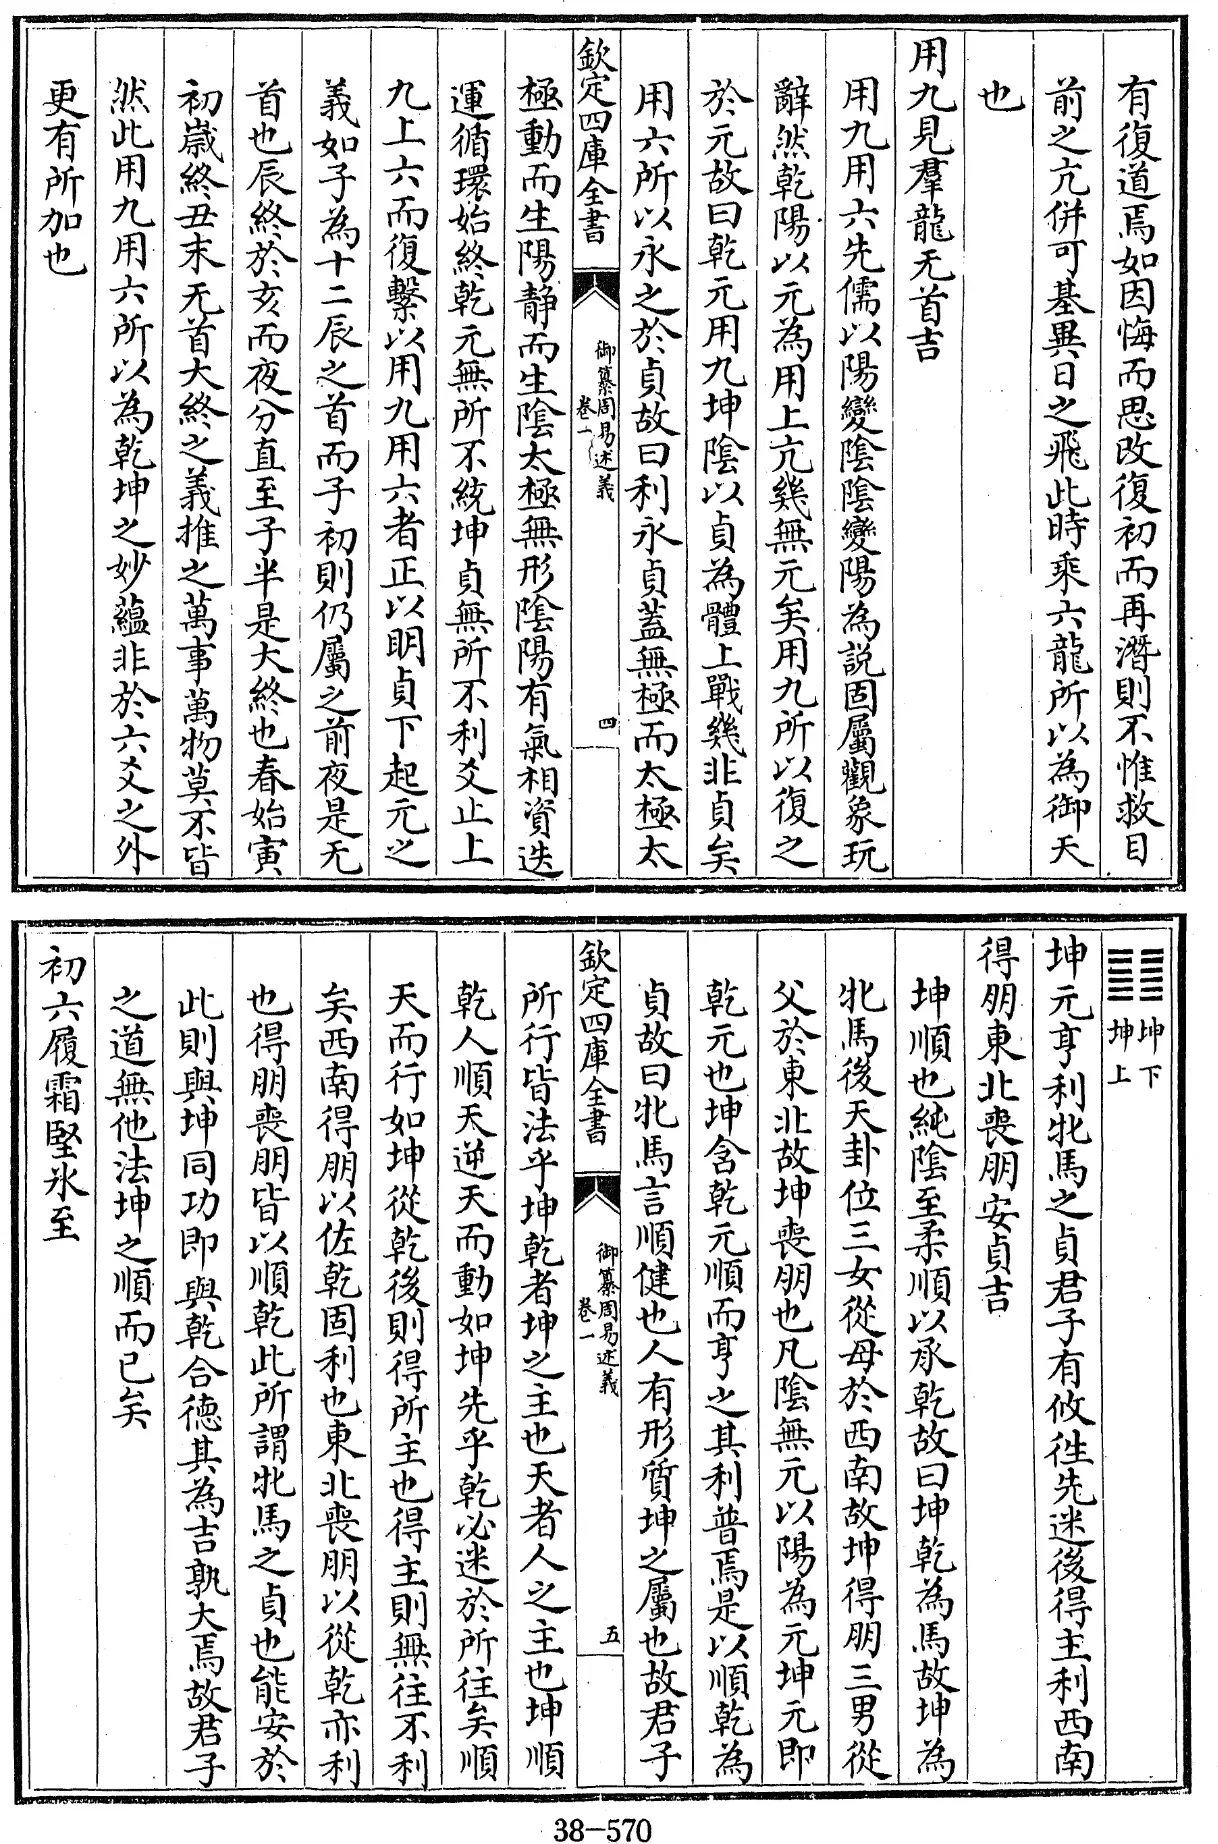 有復道焉如因悔而思改復初而再潛則不惟救目
前之亢併可基異日之飛此時乘六龍所以為御天
也
用九見羣龍无首吉
用九用六先儒以陽變陰陰變陽為説固屬觀象玩
辭然乾陽以元為用上亢幾無元矣用九所以復之
於元故曰乾元用九坤陰以貞為體上戰幾非貞矣
用六所以永之於貞故曰利永貞蓋無極而太極太
欽定四庫全書
御纂周易述義
卷一
四
極動而生陽静而生陰太極無形陰陽有氣相資迭
運循環始終乾元無所不統坤貞無所不利爻止上
九上六而復繫以用九用六者正以明貞下起元之
義如子為十二辰之首而子初則仍屬之前夜是无
首也辰終於亥而夜分直至子半是大終也春始寅
初歲終丑末无首大終之義推之萬事萬物莫不皆
然此用九用六所以為乾坤之妙蘊非於六爻之外
更有所加也
坤下
坤上
坤元亨利牝馬之貞君子有攸往先迷後得主利西南
得朋東北喪朋安貞吉
坤順也純陰至柔順以承乾故曰坤乾為馬故坤為
牝馬後天卦位三女從母於西南故坤得朋三男從
父於東北故坤喪朋也凡陰無元以陽為元坤元即
乾元也坤含乾元順而亨之其利普焉是以順乾為
貞故曰牝馬言順健也人有形質坤之屬也故君子
欽定四庫全書
御纂周易述義
卷一
五
所行皆法乎坤乾者坤之主也天者人之主也坤順
乾人順天逆天而動如坤先乎乾必迷於所往矣順
天而行如坤從乾後則得所主也得主則無往不利
矣西南得朋以佐乾固利也東北喪朋以從乾亦利
也得朋喪朋皆以順乾此所謂牝馬之貞也能安於
此則與坤同功即與乾合德其為吉孰大焉故君子
之道無他法坤之順而已矣
初六履霜堅氷至
38-570